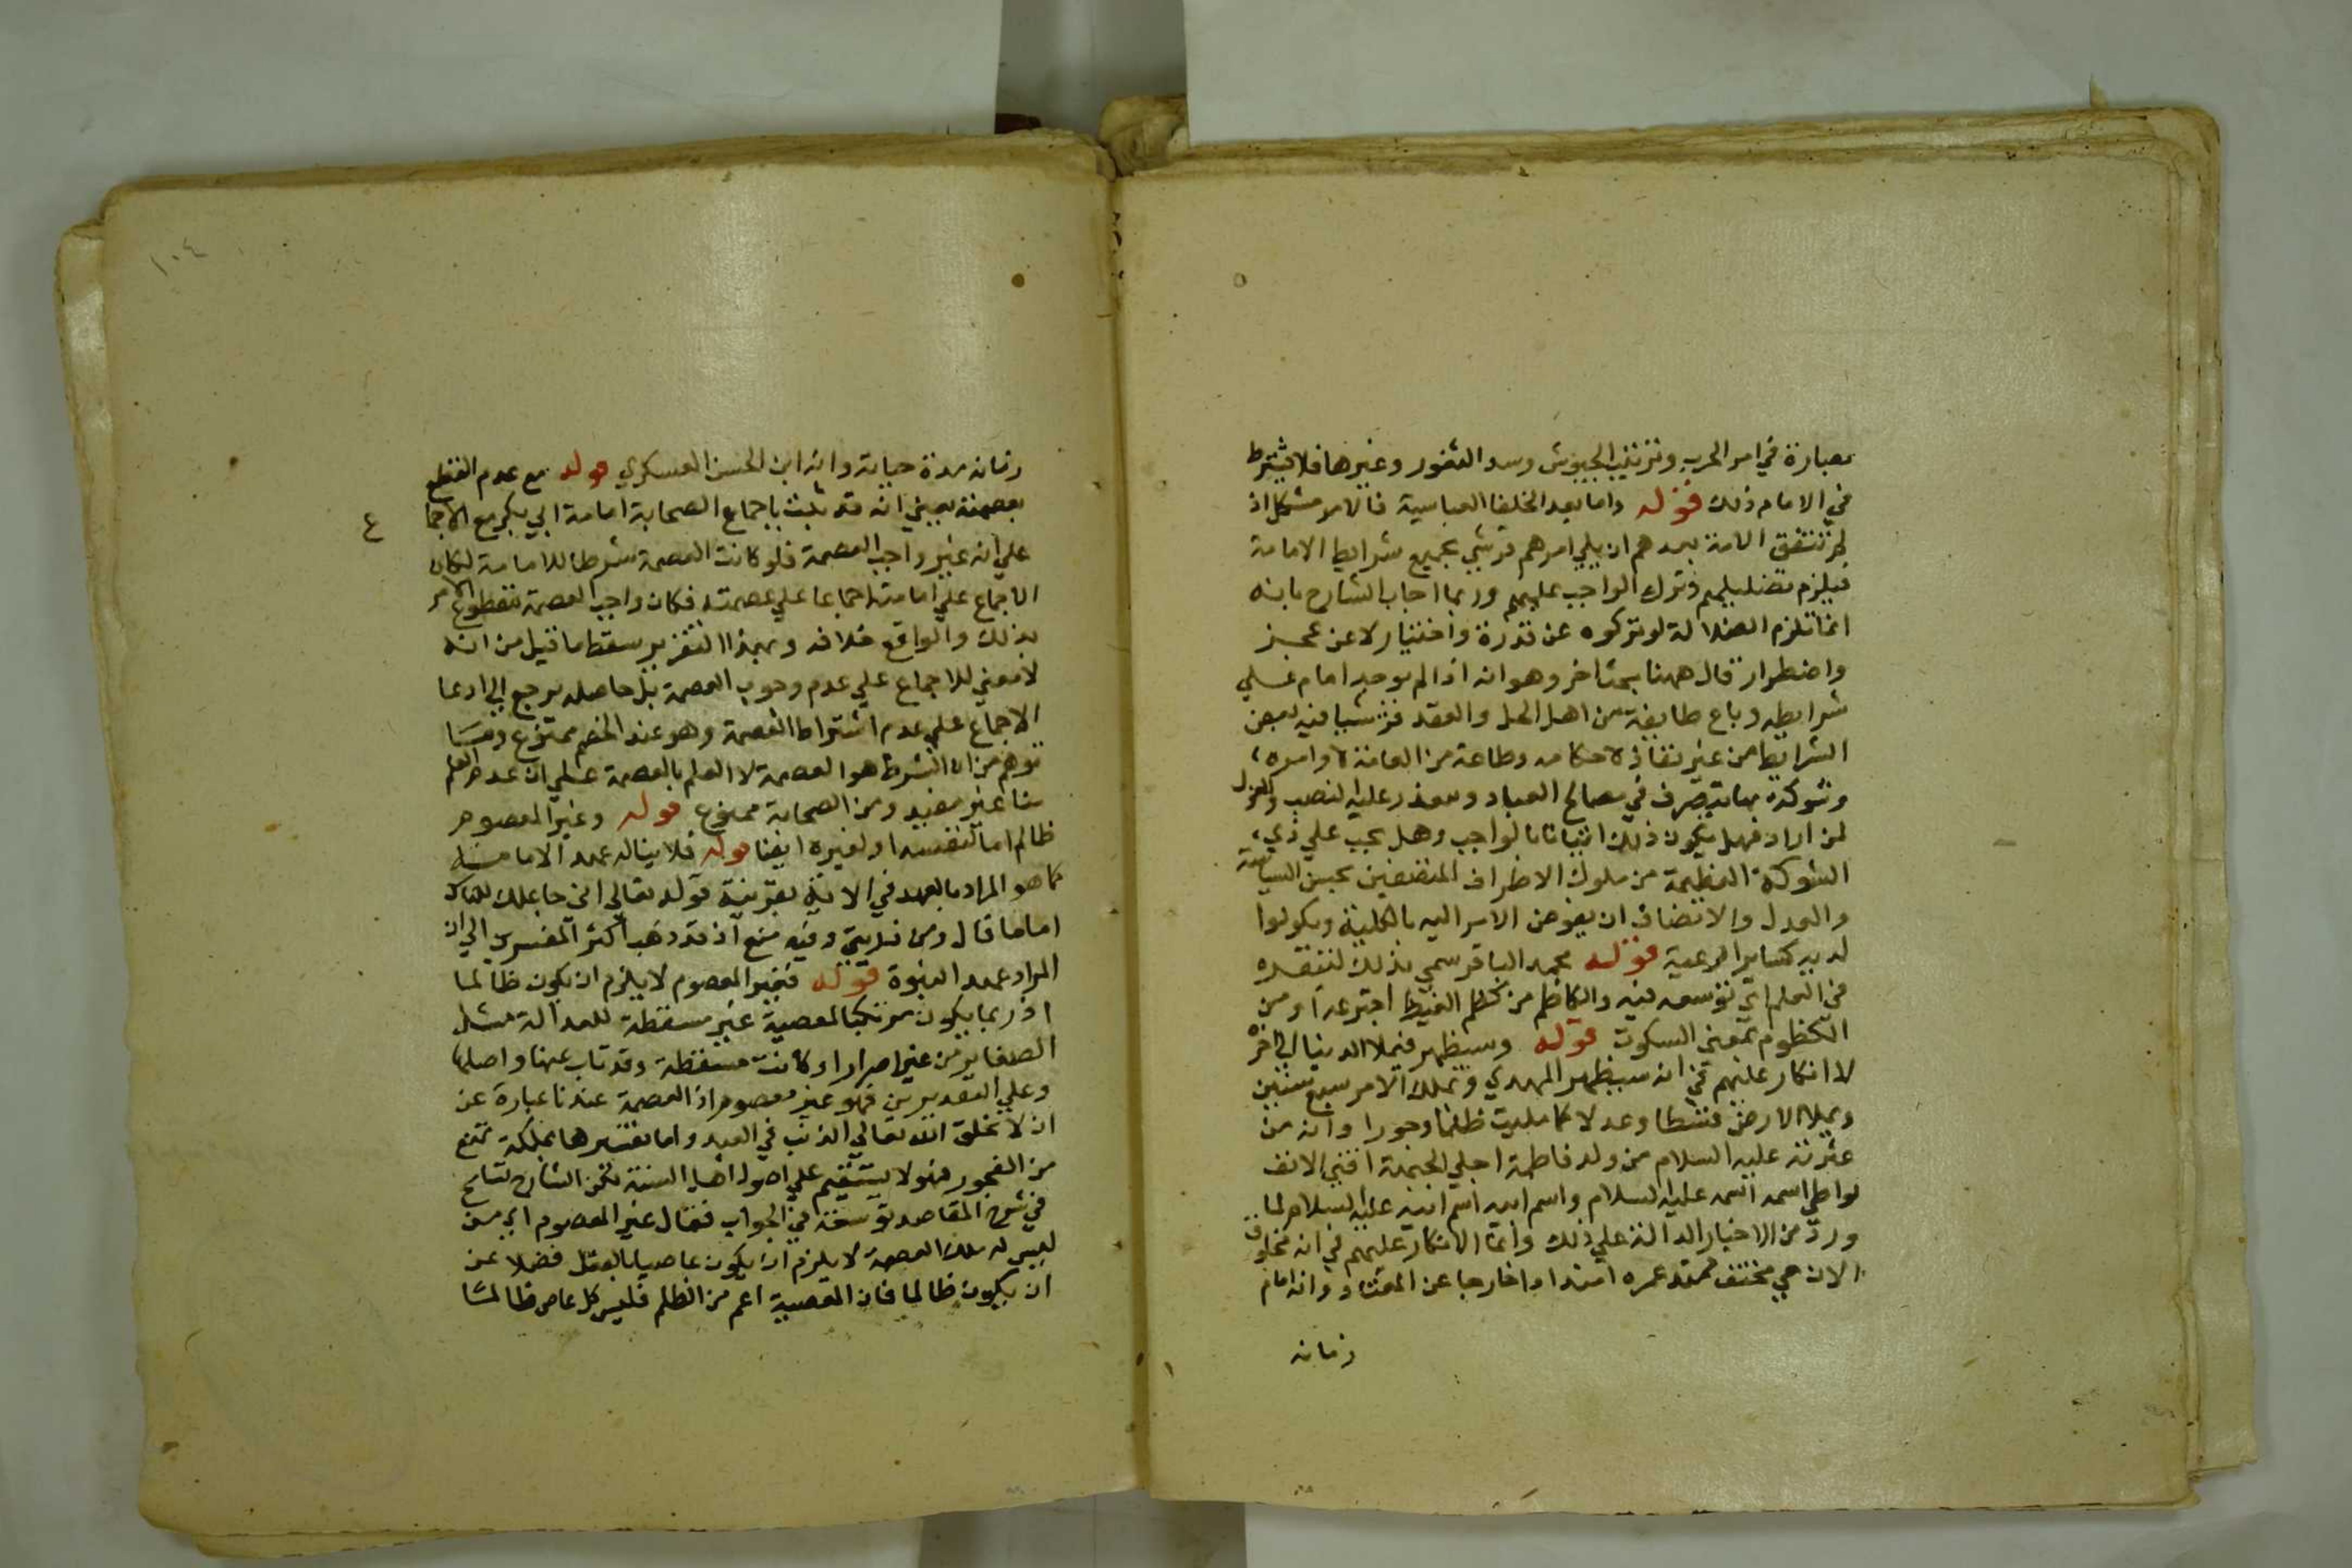 بصارة في امر الحرب وترتيب الجيوش وسد الثغور وغيرها فلا يشترط
في الامام ذلك قوله واما بعد الخلفا العباسية فالامر مشكل اذ
لم تتفق الامة بعدهم ان يلي امرهم قرشي بجميع شرايط الامامة
فيلزم تضليلهم وترك الواجب عليهم وربما اجاب الشارح بانه
انما تلزم الضلالة لو تركوه عن قدرة واختيار لا عن عجز
واضطرار قال ههنا بحث اخر وهو انه اذا لم يوجد امام علي
شرايطه وبايع طايفة من اهل الحل والعقد قرشيا فيه بعض
الشرايط من غير نفاذ لاحكامه وطاعة من العامة لاوامره
وشوكة بها يتصرف في مصالح العباد ويقدر علي النصب والعزل
لمن اراد فهل يكون ذلك اتيانا بالواجب وهل يجب علي ذي
الشوكة العظيمة من ملوك الاطراف المتصفين بحسن السياسة
والعدل والانصاف ان يفوض الامر اليه بالكلية ويكونوا
لديه كساير الرعية قوله محمد الباقر سمي بذلك لتبقره
في العلم اي توسعه فيه والكاظم من كظم الغيظ اجترعه او من
الكظوم بمعني السكوت قوله وسيظهر فيملا الدنيا الي اخره
لا انكار عليهم في انه سيظهر المهدي ويملك الامر سبع سنين
ويملا الارض قسطا وعدلا كما مليت ظلما وجورا وانه من
عترته عليه السلام من ولد فاطمة اجلي الجبهة اقني الانف
يواطي اسمه اسمه عليه السلام واسم ابيه اسم ابيه عليه السلام لما
ورد من الاخبار الدالة علي ذلك وانما الانكار عليهم في انه مخلوق
الان حي مختف ممتد عمره امتدادا خارجا عن المعتاد وانه امام
زمانه
١٠٤
زمانه مدة حياته وانه ابن الحسن العسكري قوله مع عدم القطع
بعصمته يعني انه قد ثبت باجماع الصحابة امامة ابي بكر مع الاجما
ع
علي انه غير واجب العصمة فلو كانت العصمة شرطا للامامة لكان
الاجماع علي امامته اجماعا علي عصمته فكان واجب العصمة مقطوع الامر
بذلك والواقع خلافه وبهذا التقرير سقط ما قيل من انه
لا معني للاجماع علي عدم وجوب العصمة بل حاصله يرجع الي ادعا
الاجماع علي عدم اشتراط العصمة وهو عند الخصم ممنوع وما
توهم من ان الشرط هو العصمة لا العلم بالعصمة علي ان عدم العلم
منا غير مفيد ومن الصحابة ممنوع قوله وغير المعصوم
ظالم اما لنفسه او لغيره ايضا قوله فلا يناله عهد الامامة
كما هو المراد بالعهد في الاية بقرينة قوله تعالي اني جاعلك للناس
اماما قال ومن ذريتي وفيه منع اذ قد ذهب اكثر المفسرين الي ان
المراد عهد النبوة قوله فغير المعصوم لا يلزم ان يكون ظالما
اذ ربما يكون مرتكبا لمعصية غير مسقطة للعدالة مثل
الصغاير من غير اصرار او كانت مسقطة وقد تاب عنها واصلح
وعلي التقديرين فهو غير معصوم اذ العصمة عندنا عبارة عن
ان لا يخلق الله تعالي الذنب في العبد واما تفسيرها بملكة تمنع
من الفجور فهو لا يستقيم علي اصول اهل السنة لكن الشارح تسامح
في شرح المقاصد توسعة في الجواب فقال غير المعصوم اي من
ليس له ملكة العصمة لا يلزم ان يكون عاصيا بالفعل فضلا عن
ان يكون ظالما فان المعصية اعم من الظلم فليس كل عاص ظالما